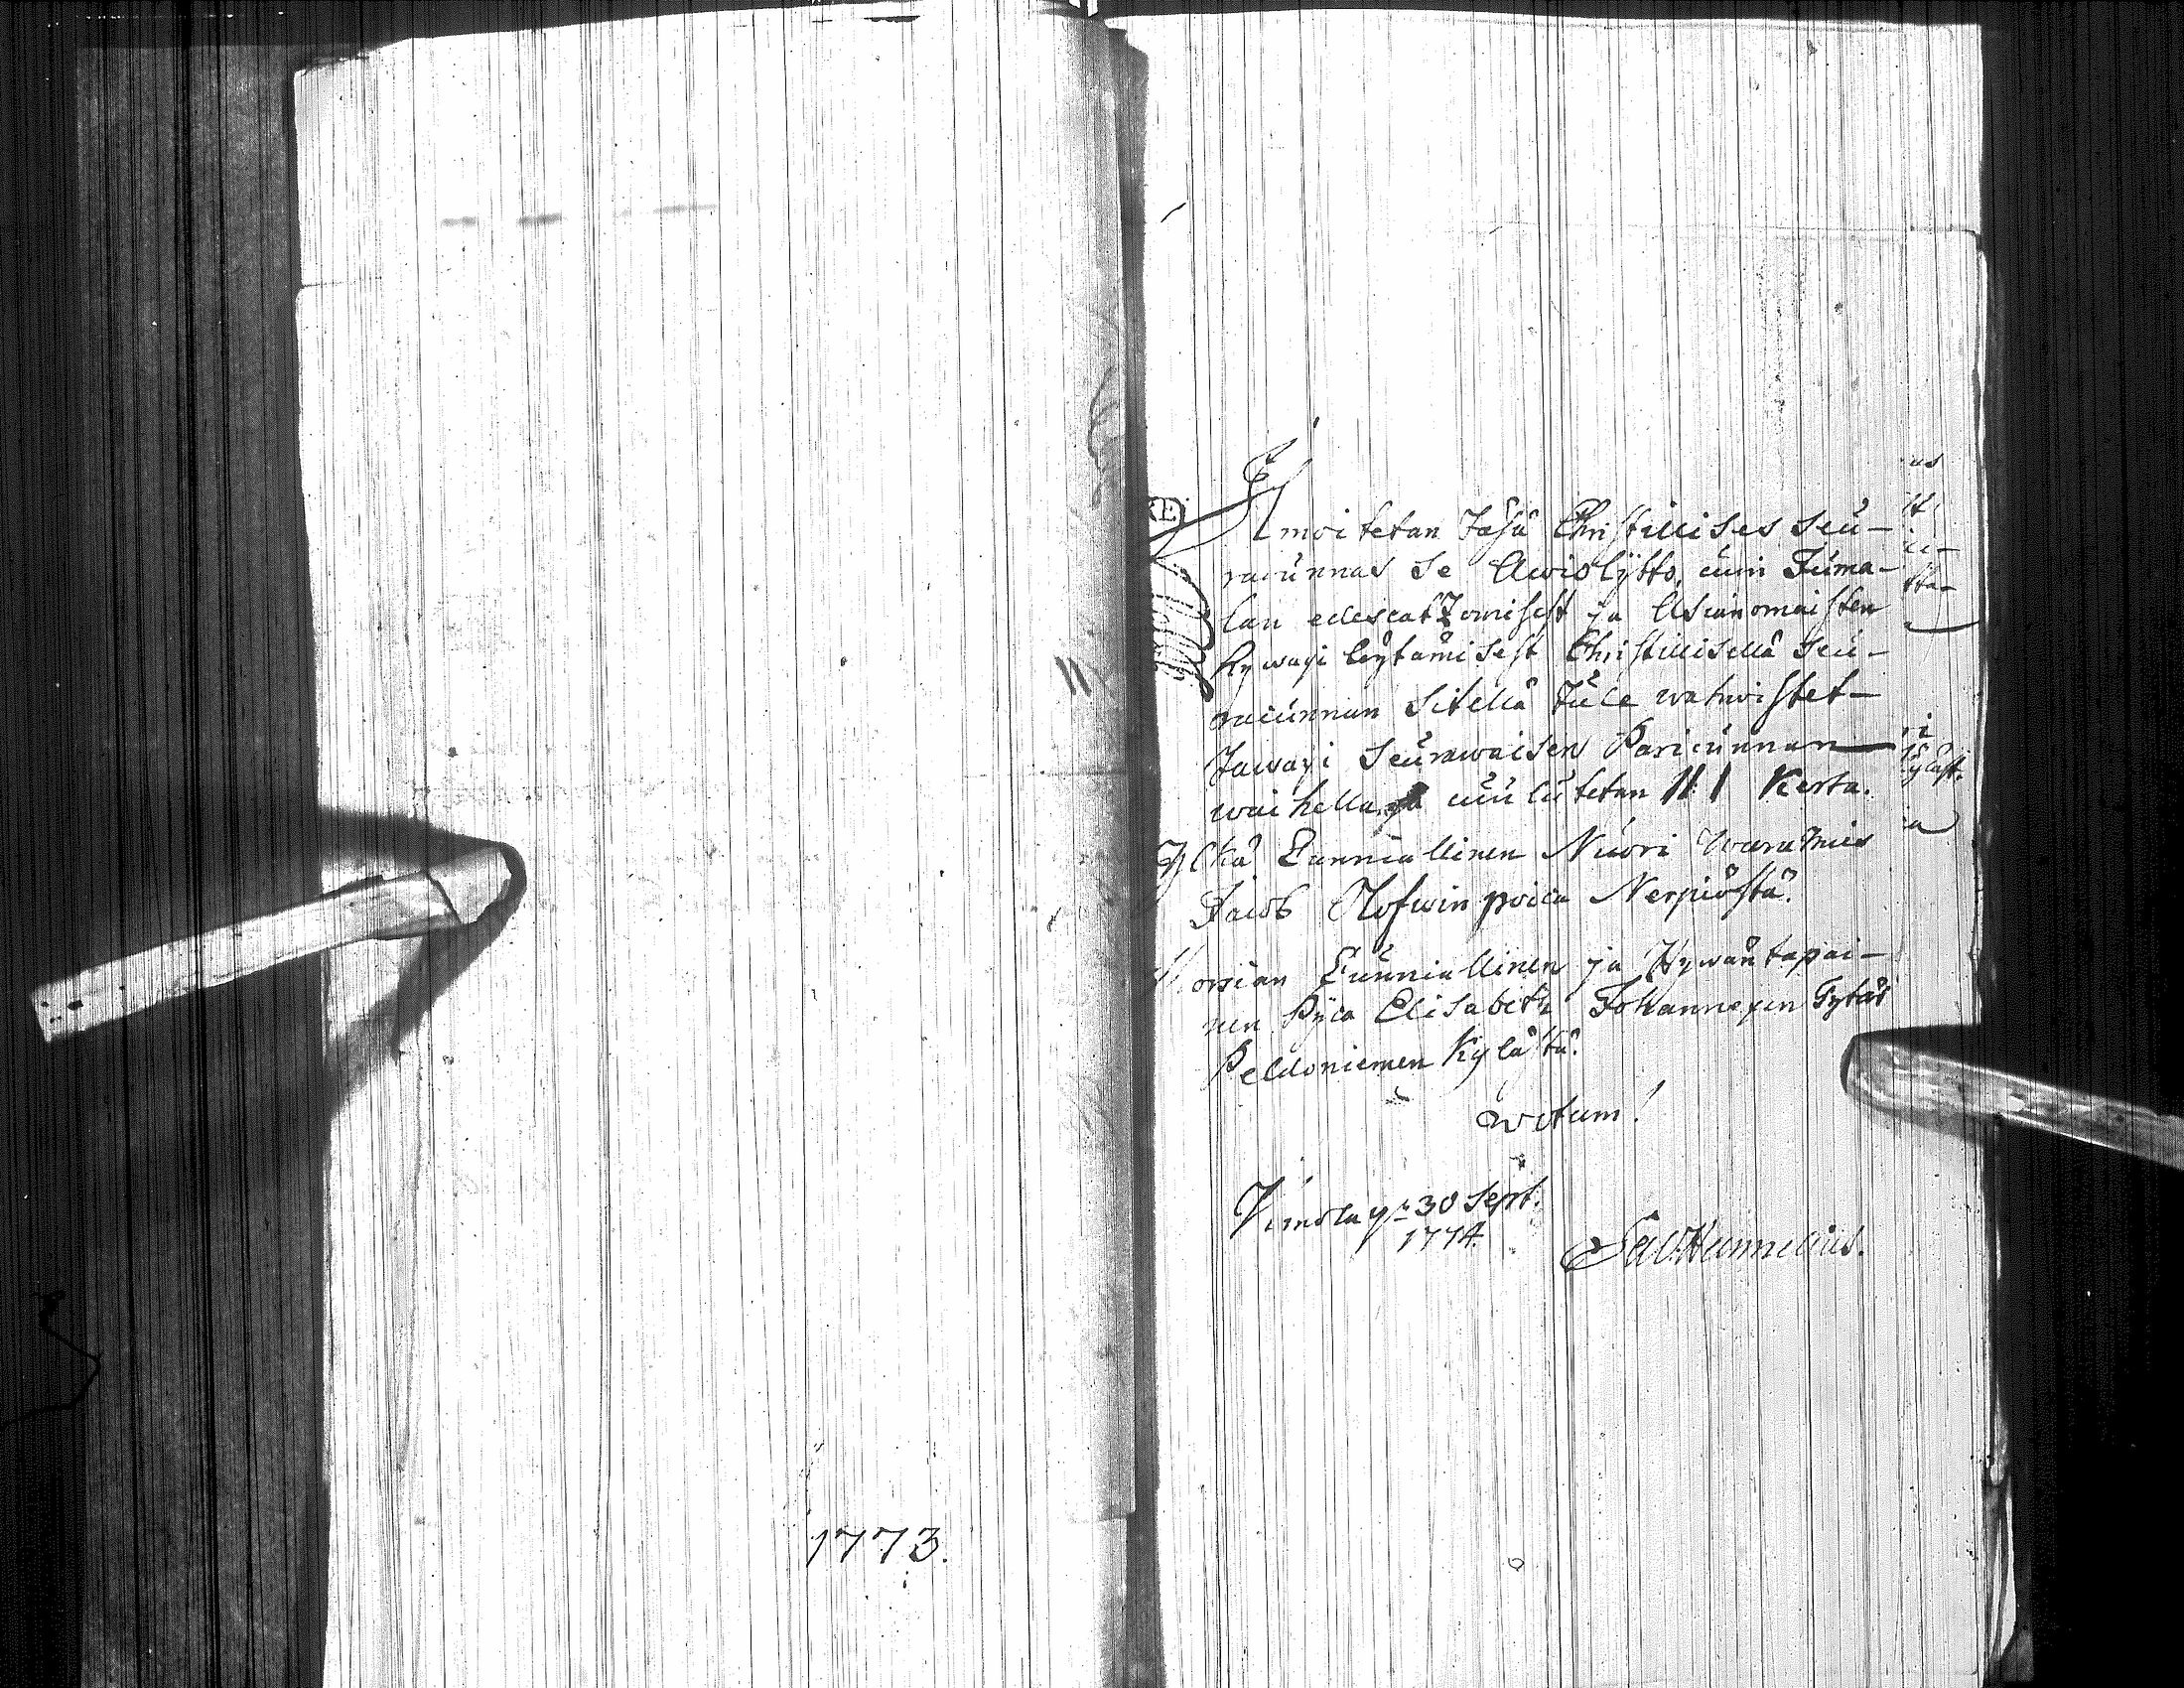 1773.
Ilmoitetan Täsä Christillises Seu-
racunnas se Awiolijtto, cuin Juma-
lan edescatzomisest ja Asianomaisten
hywäxi löytämisest Christillisellä Seu-
racunnan Sitellä tule wahwistet-
tawaxi Seurawaisen Paricunnan
waihella, ja cuulutetan III Kerta.
Yljkä Cunniallinen Nuori
Jacob Olofwin poica Nerpiöstä.
Morsian Cunniallinen ja Hywäntapai-
nen Pijca Elisabeth Johannexen Tytär
Peldoniemen Kylästä.
votum!
30 Sept.
1774.